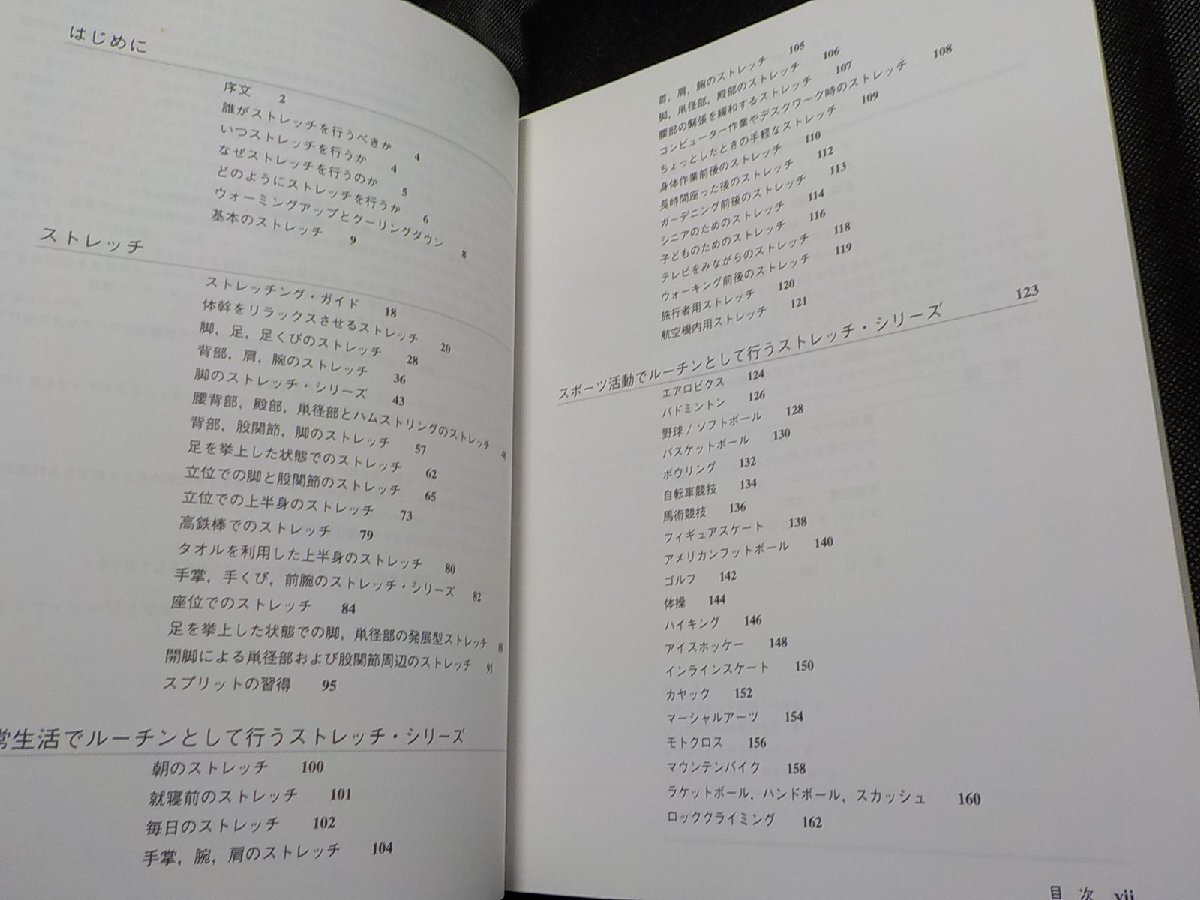 はじめに
序文 2
誰がストレッチを行うべきか 4
いつストレッチを行うか 4
なぜストレッチを行うのか 5
どのようにストレッチを行うか 6
ウォーミングアップとクーリングダウン 8
基本のストレッチ 9
ストレッチ
ストレッチング・ガイド 18
体幹をリラックスさせるストレッチ 20
脚，足，足くびのストレッチ 28
背部，肩，腕のストレッチ 36
脚のストレッチ・シリーズ 43
腰背部，殿部，鼡径部とハムストリングのストレッチ
背部，股関節，脚のストレッチ 57
足を挙上した状態でのストレッチ 62
立位での脚と股関節のストレッチ 65
立位での上半身のストレッチ 73
高鉄棒でのストレッチ 79
タオルを利用した上半身のストレッチ 80
手掌，手くび，前腕のストレッチ・シリーズ 82
座位でのストレッチ 84
足を挙上した状態での脚，鼡径部の発展型ストレッチ
開脚による鼡径部および股関節周辺のストレッチ 91
スプリットの習得 95
常生活でルーチンとして行うストレッチ・シリーズ
朝のストレッチ 100
就寝前のストレッチ 101
毎日のストレッチ 102
手掌，腕，肩のストレッチ 104
首，肩，腕のストレッチ 105
脚，鼡径部，殿部のストレッチ 106
腰部の緊張を緩和するストレッチ 107
コンピューター作業やデスクワーク時のストレッチ 108
ちょっとしたときの手軽なストレッチ 109
身体作業前後のストレッチ 110
長時間座った後のストレッチ 112
ガーデニング前後のストレッチ 113
シニアのためのストレッチ 114
子どものためのストレッチ 116
テレビをみながらのストレッチ 118
ウォーキング前後のストレッチ 119
旅行者用ストレッチ 120
航空機内用ストレッチ 121
スポーツ活動でルーチンとして行うストレッチ・シリーズ 123
エアロビクス 124
バドミントン 126
野球／ソフトボール 128
バスケットボール 130
ボウリング 132
自転車競技 134
馬術競技 136
フィギュアスケート 138
アメリカンフットボール 140
ゴルフ 142
体操 144
ハイキング 146
アイスホッケー 148
インラインスケート 150
カヤック 152
マーシャルアーツ 154
モトクロス 156
マウンテンバイク 158
ラケットボール，ハンドボール，スカッシュ 160
ロッククライミング 162
目 次 vii